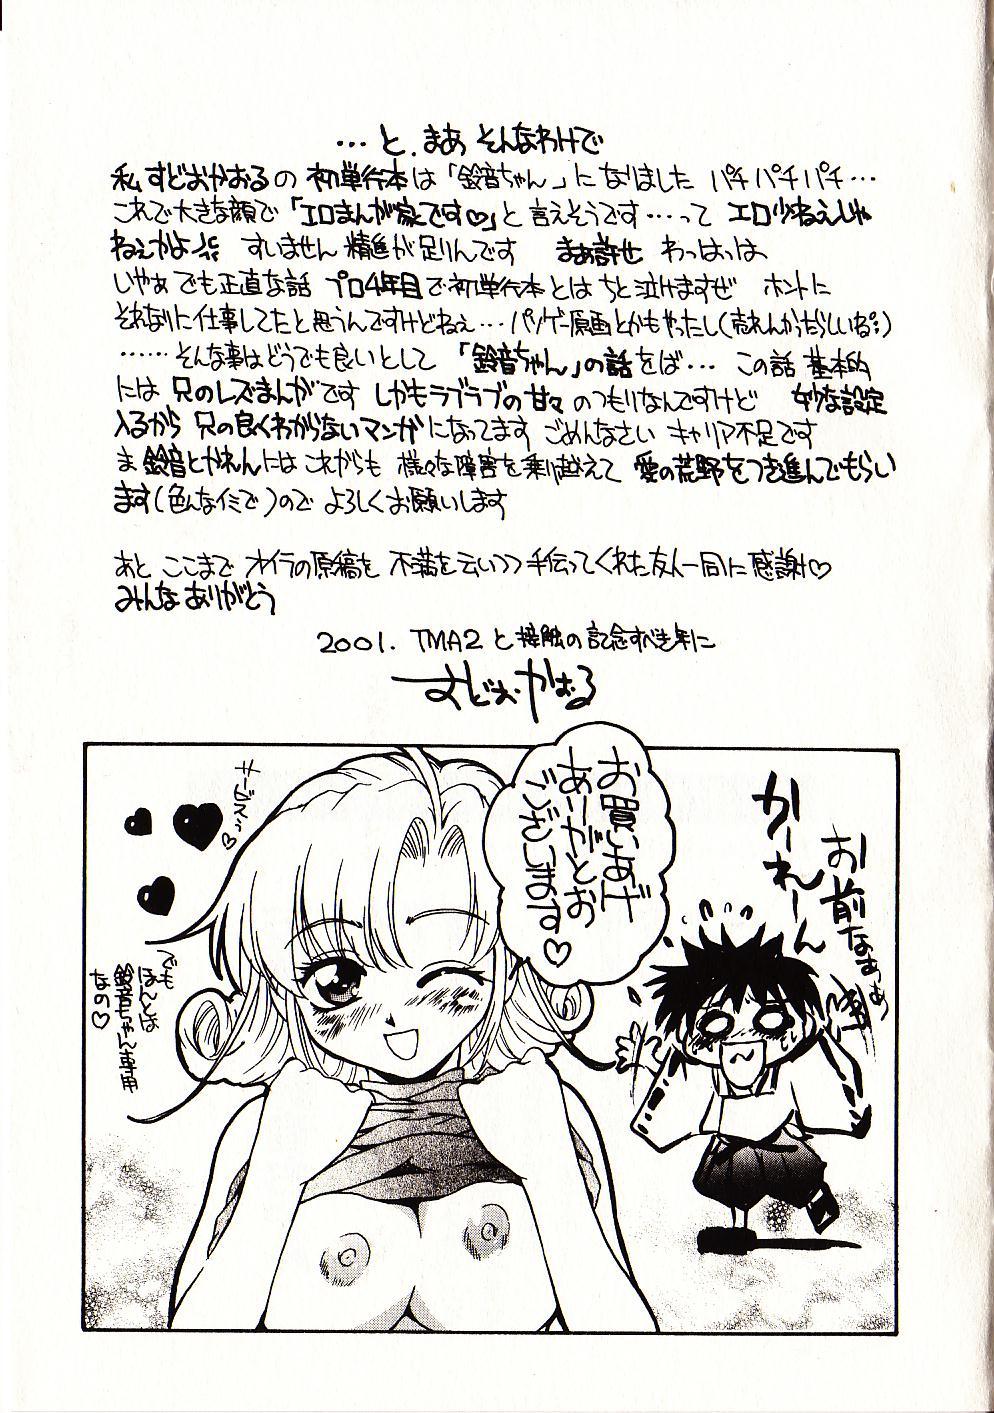 …と、まあ そんなわけで
私 すどおかおるの 初単行本は「鈴音ちゃん」になりました パチパチパチ…
これで大きな顔で「エロまんが家です♡」と言えそうです…って エロ少ねえじゃ
ねぇかよ すいません 精進が足りんです まあ許せ わっはっは
いやあ でも正直な話 プロ4年目で初単行本とは ちと泣けますぜ ホントに
それなりに仕事してたと思うんですけどねぇ…パソゲー原画とかもやったし(売れんかったらしいね)
……そんな事はどうでも良いとして 「鈴音ちゃん」の話をば… この話 基本的
には 兄のレズまんがです しかもラブラブの甘々 のつもりなんですけど 妙な設定
入るから 兄の良くわからないマンガになってます ごめんなさい キャリア不足です
ま 鈴音とかれんには これからも 様々な障害を乗り越えて 愛の荒野をつき進んでもらい
ます(色んなイミで)ので よろしくお願いします
あと ここまで オイラの原稿を 不満を云いつつ手伝ってくれた友人一同に 感謝♡
みんなありがとう
2001. TMA2 と接触の記念すべき年に
すどお・かおる
かーれーん
お前なぁぁ
お買いあげ
ありがとお
ございます♡
サービスっ♡
でも
ほんとは
鈴音ちゃん専用
なの♡